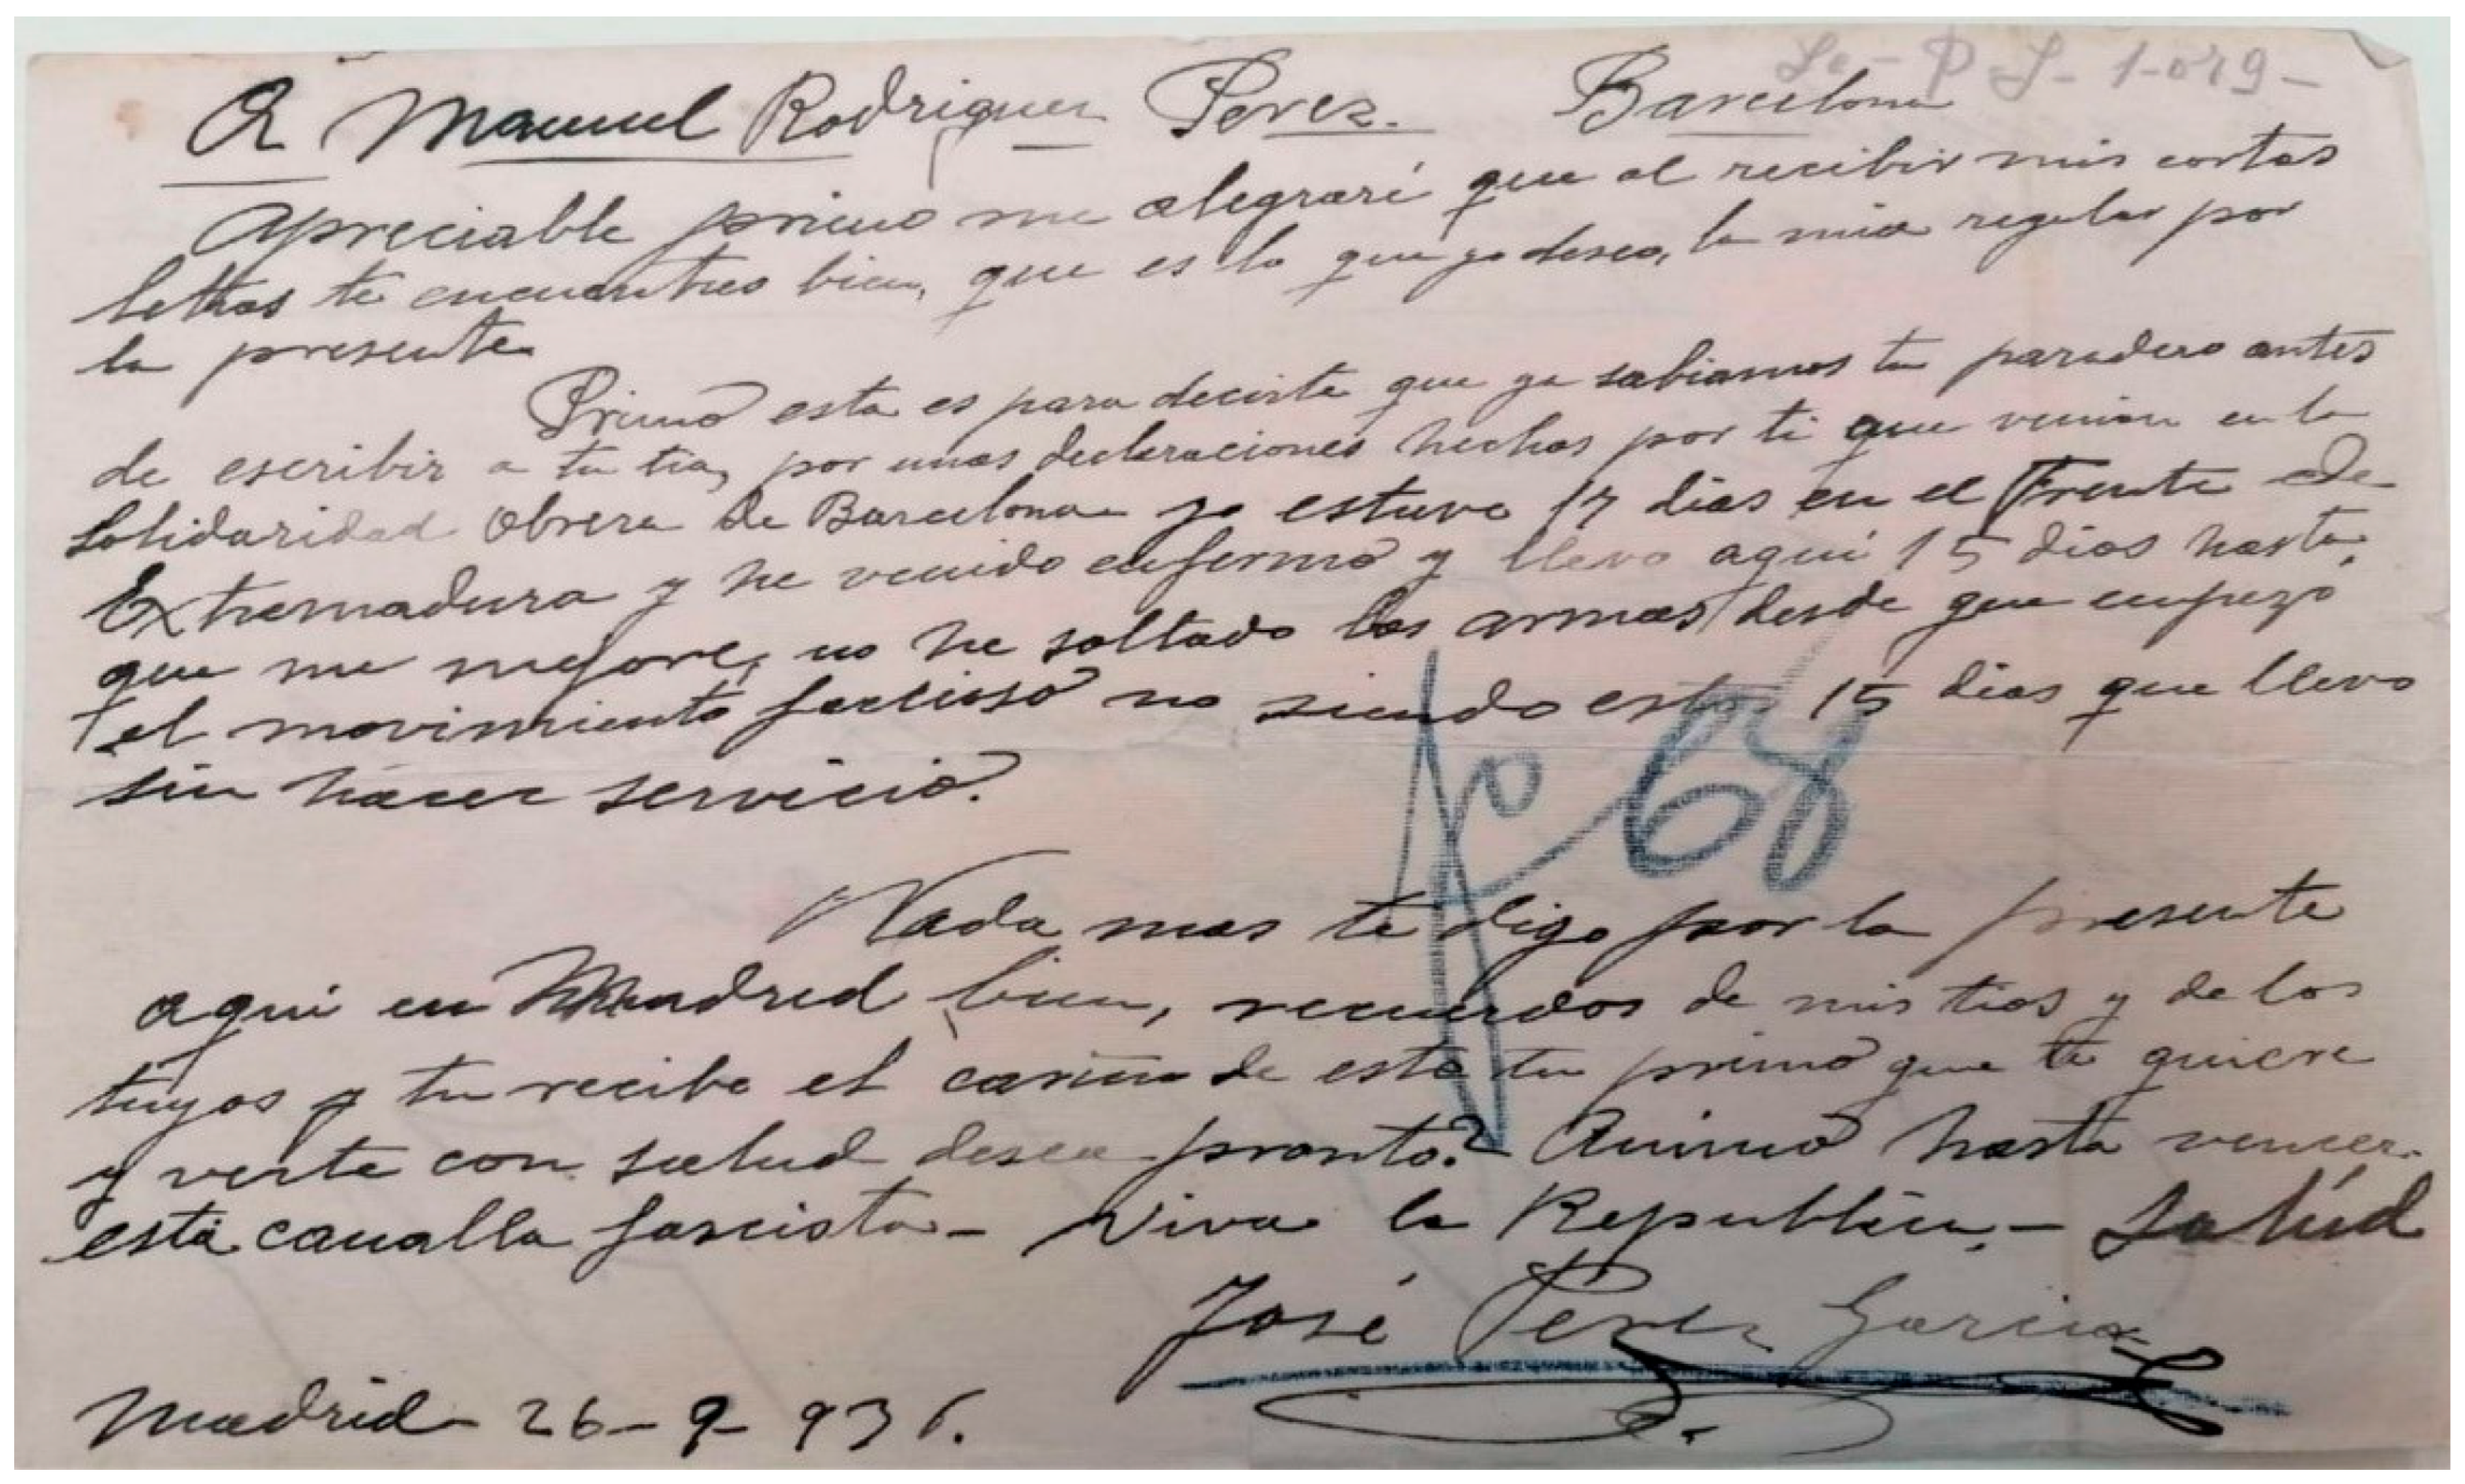 A Manuel Rodriguez Perez. Barcelona
Apreciable primo me alegraré que al recibir mis cortas
letras te encuentres bien, que es lo que yo deseo, la mia regular por
la presente
Primo esta es para decirte que ya sabiamos tu paradero antes
de escribir a tu tia, por unas declaraciones hechas por ti que venian en la
Solidaridad Obrera de Barcelona yo estuve 17 dias en el Frente de
Extremadura y he venido enfermo y llevo aqui 15 dias hasta
que me mejore, no he soltado las armas desde que empezo
el movimiento faccioso no siendo estos 15 dias que llevo
sin hacer servicio.
fº 68
Nada mas te digo por la presente
aqui en Madrid bien, recuerdos de mis tios y de los
tuyos y tu recibe el cariño de este tu primo que te quiere
y verte con salud desea pronto? Animo hasta vencer
esta canalla fascista - Viva la Republica - Salud
José Perez Garcia
Madrid - 26-9-936.